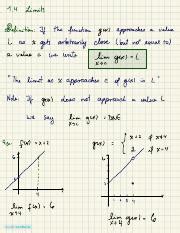 1.4 Limits
Definition: If the function g(x) approaches a value
L as x gets arbitrarily close (but not equal) to
a value c we write lim x→c g(x) = L
"The limit as x approaches c of g(x) is L"
Note: If g(x) does not approach a value L
we say lim x→c g(x) = DNE
Ex: f(x) = x+2 g(x) = { x+2 if x≠4
2 if x=4
6
4
6
4
lim x→4 f(x) = 6 lim x→4 g(x) = 6